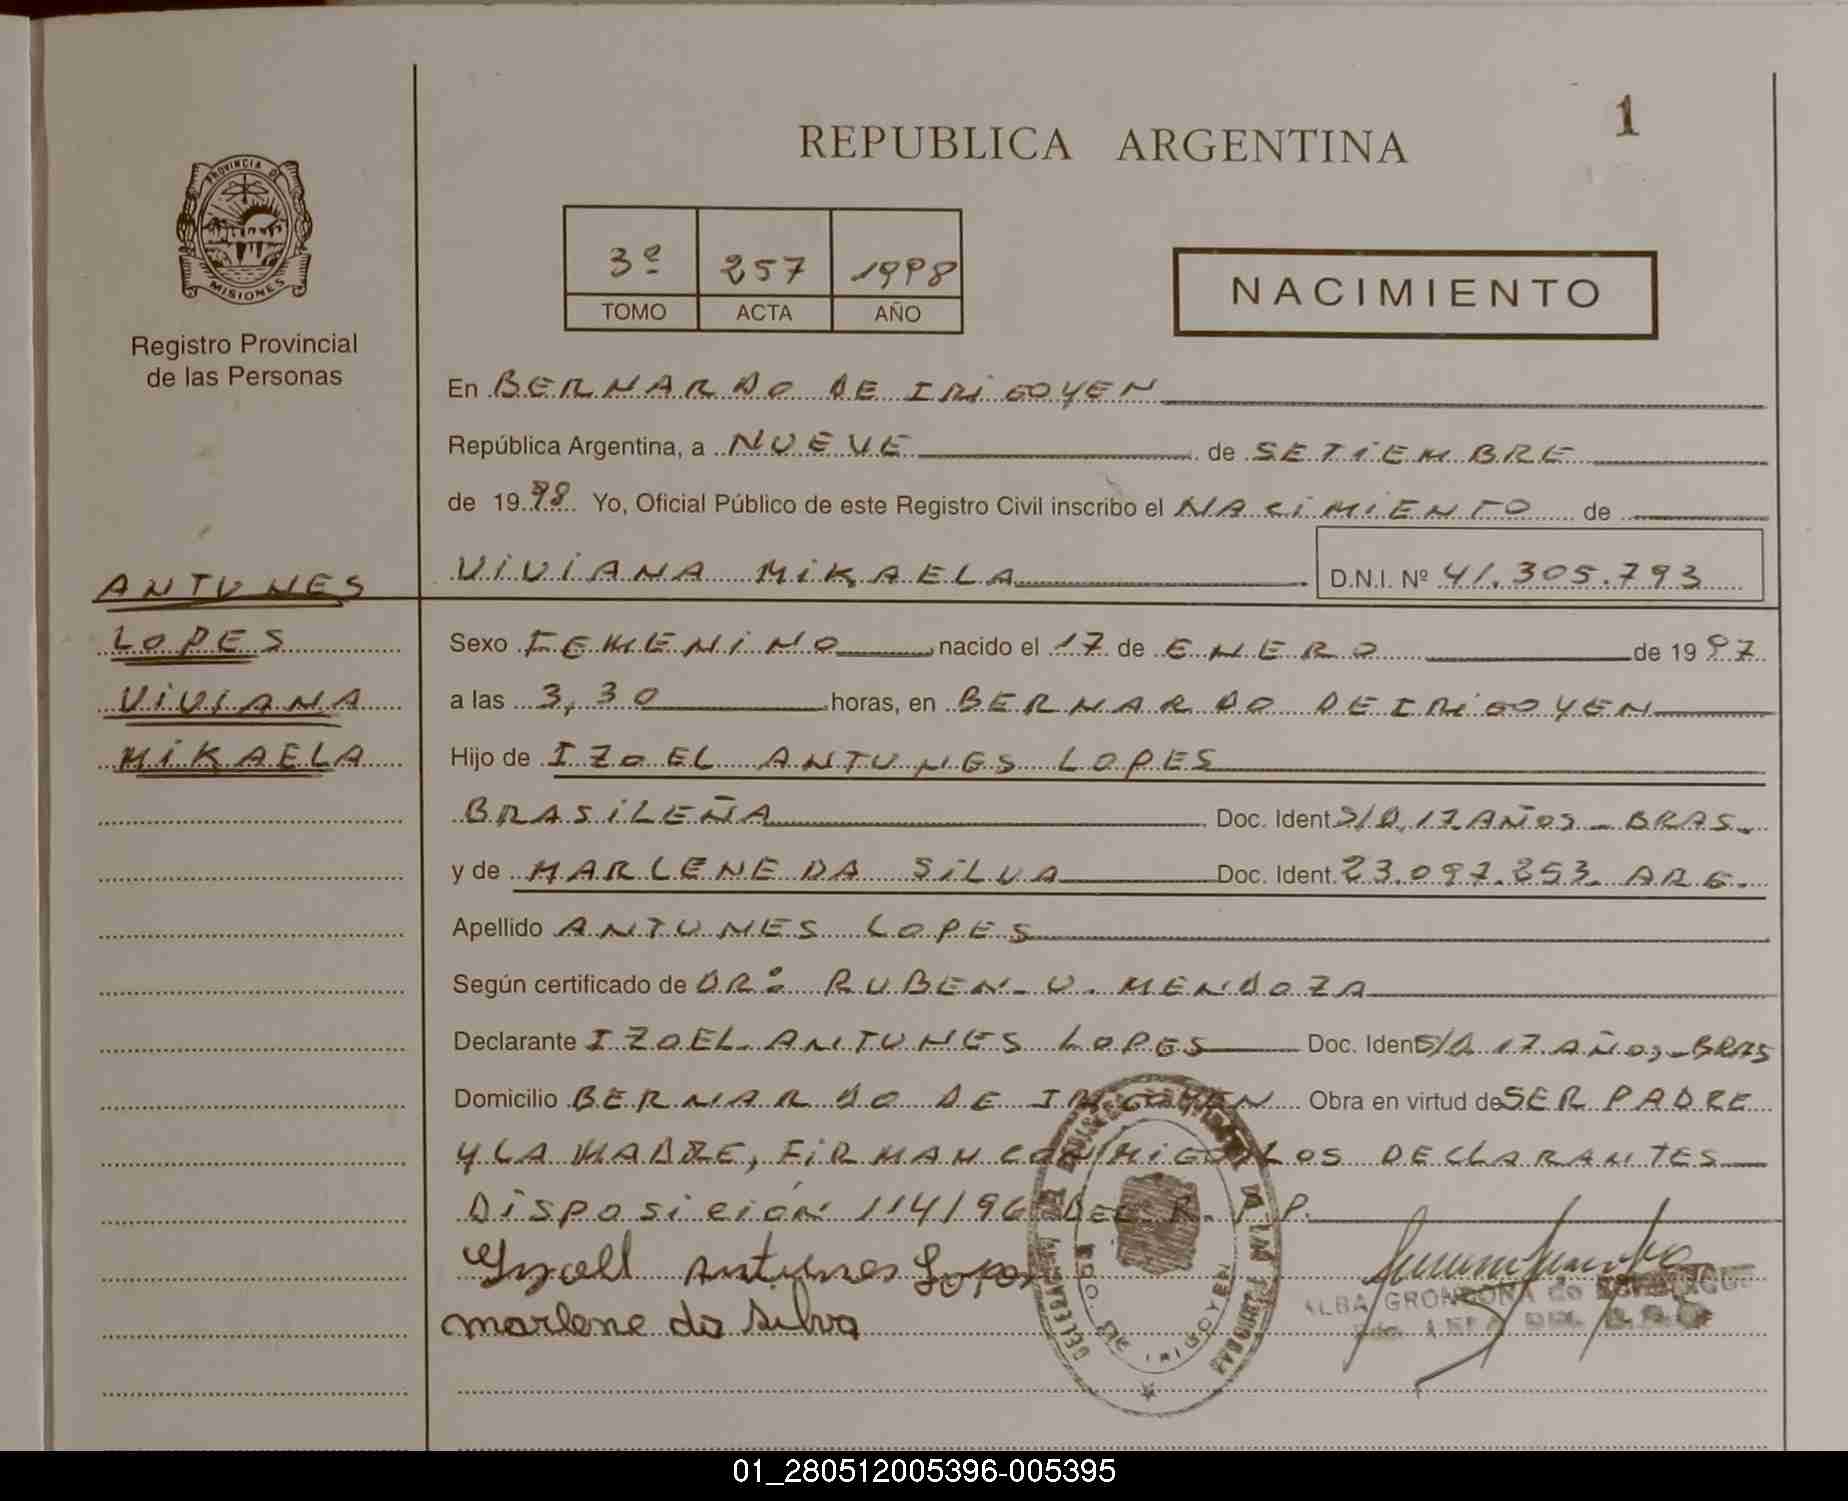 1
REPUBLICA ARGENTINA
PROVINCIA DE
MISIONES
Registro Provincial
de las Personas
3º 257 1998
TOMO ACTA AÑO
NACIMIENTO
En BERNARDO DE IRIGOYEN
República Argentina, a NUEVE de SETIEMBRE
de 1998 Yo, Oficial Público de este Registro Civil inscribo el NACIMIENTO de
VIVIANA MIKAELA D.N.I. Nº 41.305.793
ANTUNES
LOPES
VIVIANA
MIKAELA
Sexo FEMENINO nacido el 17 de ENERO de 1997
a las 3,30 horas, en BERNARDO DE IRIGOYEN
Hijo de IZOEL ANTUNES LOPES
BRASILEÑA Doc. Ident S/D, 17 AÑOS - BRAS.
y de MARLENE DA SILVA Doc. Ident. 23.097.253. ARG.
Apellido ANTUNES LOPES
Según certificado de DR: RUBEN V. MENDOZA
Declarante IZOEL ANTUNES LOPES Doc. Iden S/D 17 AÑOS - BRAS
Domicilio BERNARDO DE IRIGOYEN Obra en virtud de SER PADRE
Y LA MADRE, FIRMAN CONMIGO LOS DECLARANTES
DISPOSICIÓN 114/96 DEL R.P.P.
Antunes Lopes
marlene da silva
ALBA
IRIGOYEN
01_280512005396-005395